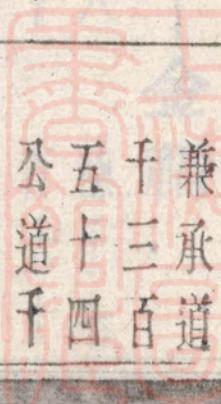 兼承道
千三百
五十四
公道千